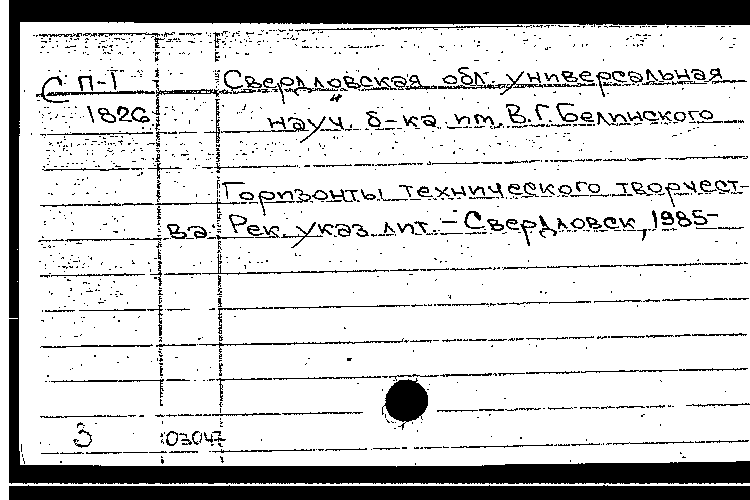 С П-1 Свердловская обл. универсальная
1826 науч. б-ка им. В.Г. Белинского
Горизонты технического творчест-
ва: Рек. указ. лит. - Свердловск, 1985-
3 03047